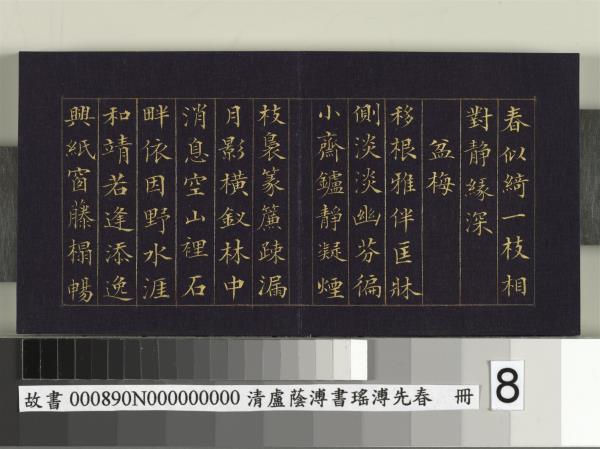 春似綺一枝相
對静緣深
盆梅
移根雅伴匡牀
側淡淡幽芬徧
小齋鑪靜凝煙
枝裊篆簾疎漏
月影橫釵林中
消息空山裡石
畔依因野水涯
和靖若逢添逸
興紙窗藤榻暢
故書 000890N000000000 清盧蔭溥書瑤溥先春 冊
8